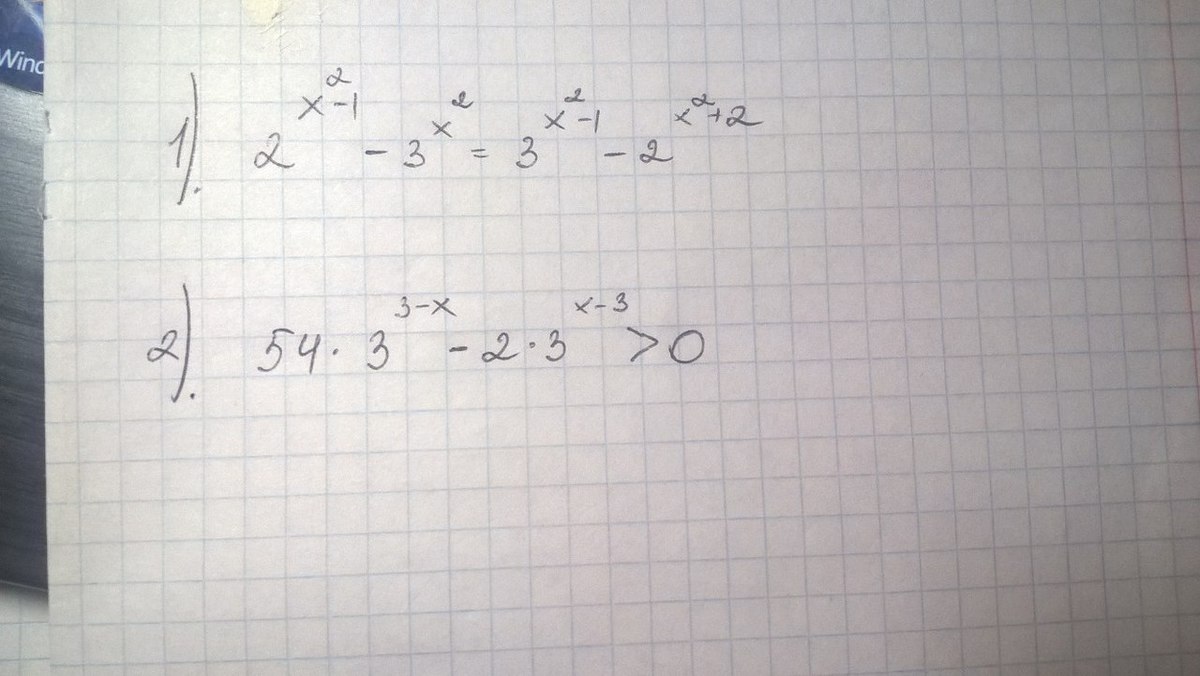 Wind
1). 2^{x^2-1} - 3^{x^2} = 3^{x^2-1} - 2^{x^2+2}
2). 54 · 3^{3-x} - 2 · 3^{x-3} > 0